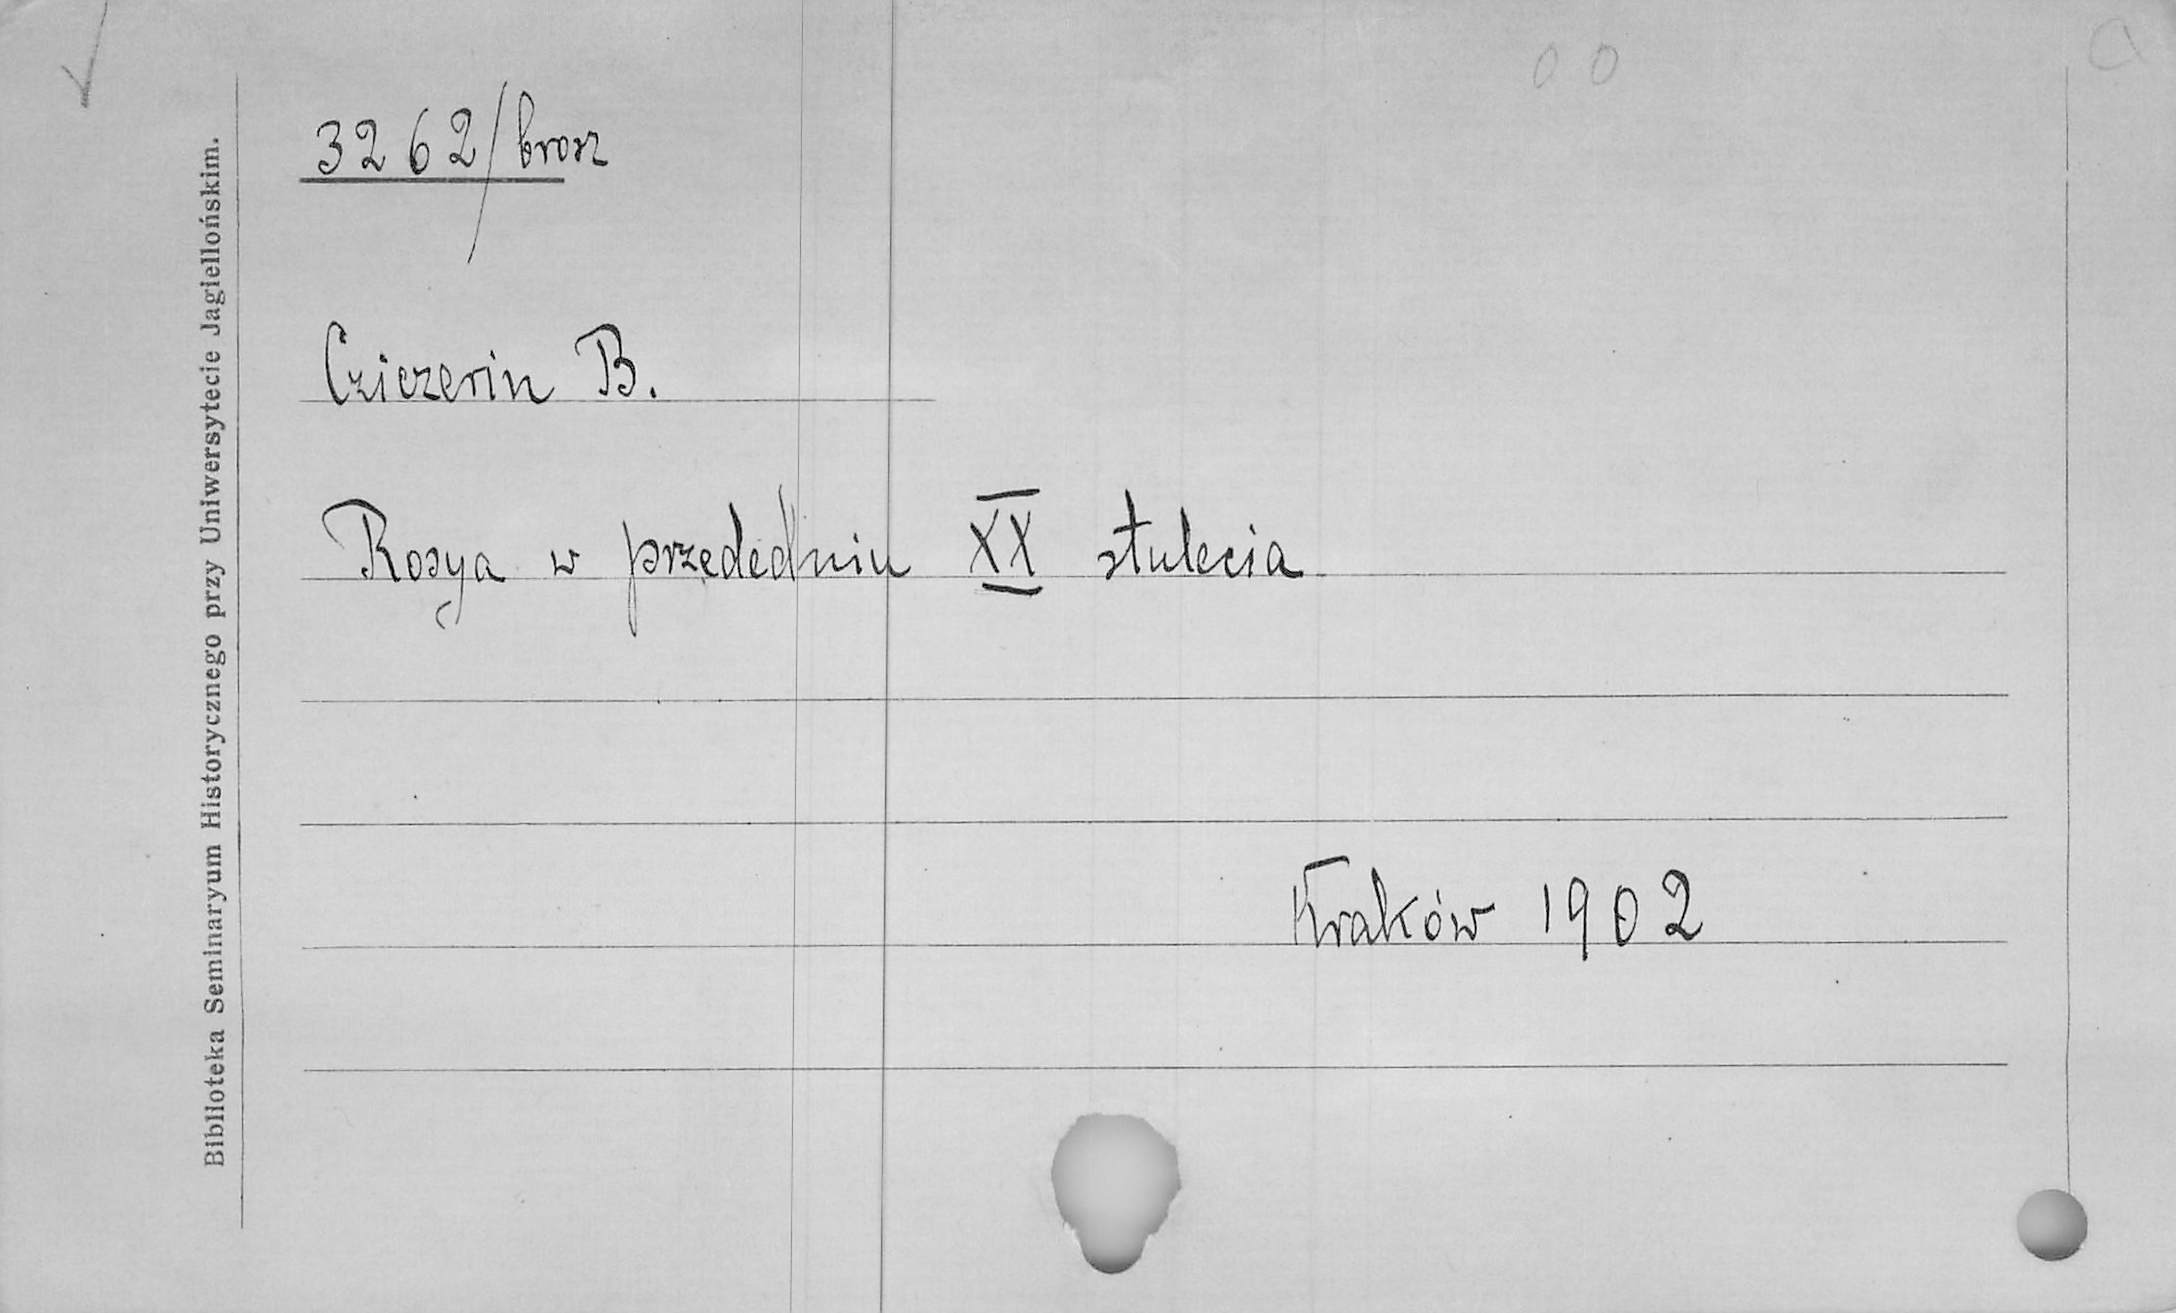 3262/brosz
Cziczerin B.
Rosya w przededniu XX stulecia
Kraków 1902
Biblioteka Seminaryum Historycznego przy Uniwersytecie Jagiellońskim.